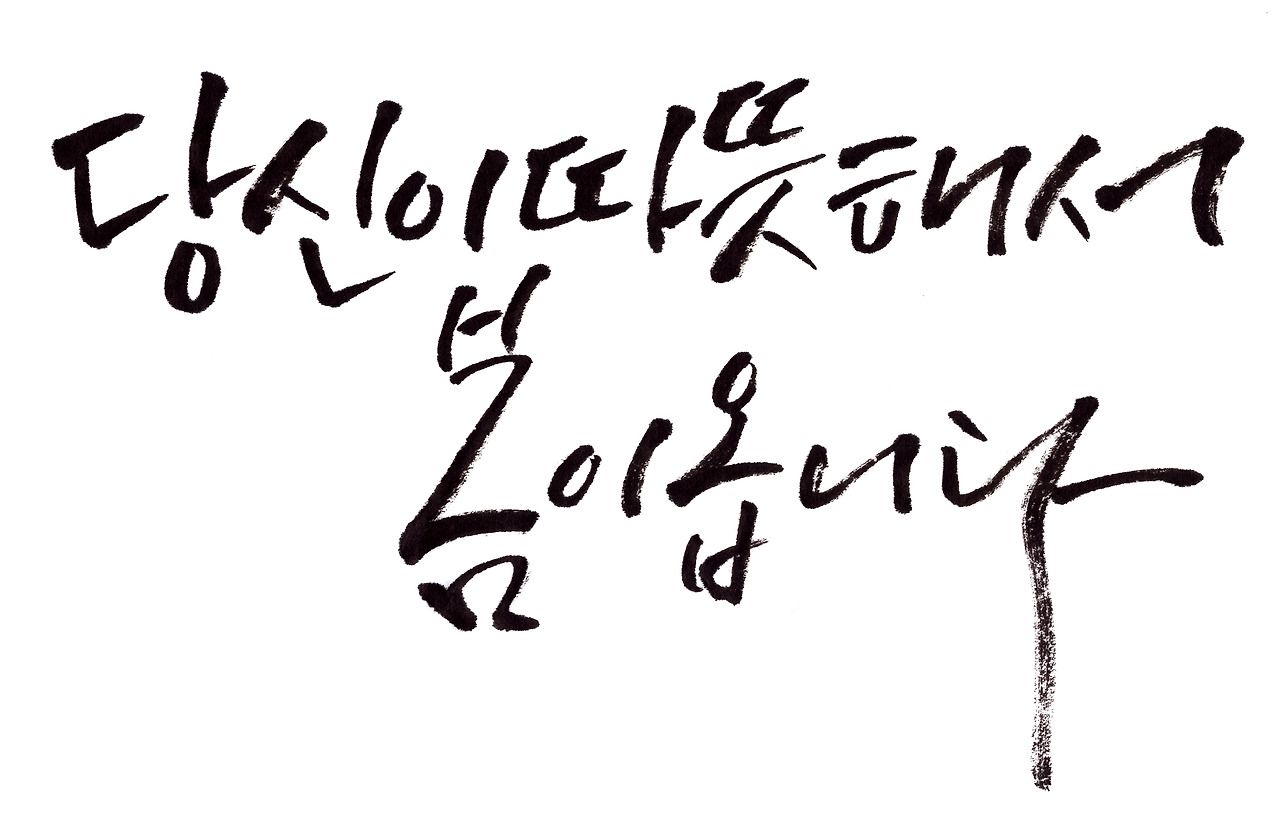 당신이 따뜻해서
봄이 옵니다